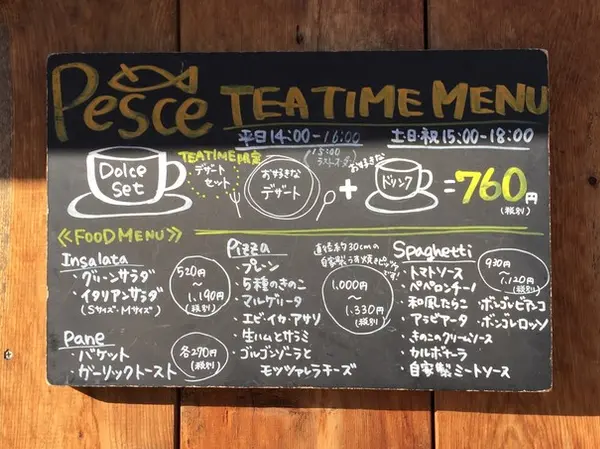 Pesce TEA TIME MENU
平日14:00-16:00 土日・祝15:00-18:00
(15:00 ラストオーダー)
Dolce Set
TEATIME限定
デザートセット
お好きな デザート
+
お好きな ドリンク
=760円(税別)
《FOOD MENU》
Insalata
・グリーンサラダ
・イタリアンサラダ
(Sサイズ・Mサイズ)
520円〜1,190円(税別)
Pane
・バケット
・ガーリックトースト
各270円(税別)
Pizza
直径約30cmの自家製うす焼きピッツァです!
・プレーン
・5種のきのこ
・マルゲリータ
・エビ・イカ・アサリ
・生ハムとサラミ
・ゴルゴンゾーラと
モッツァレラチーズ
1,000円〜1,330円(税別)
Spaghetti
・トマトソース
・ペペロンチーノ
・和風たらこ
・アラビアータ
・きのこクリームソース
・カルボナーラ
・自家製ミートソース
・ボンゴレビアンコ
・ボンゴレロッソ
930円〜1,120円(税別)